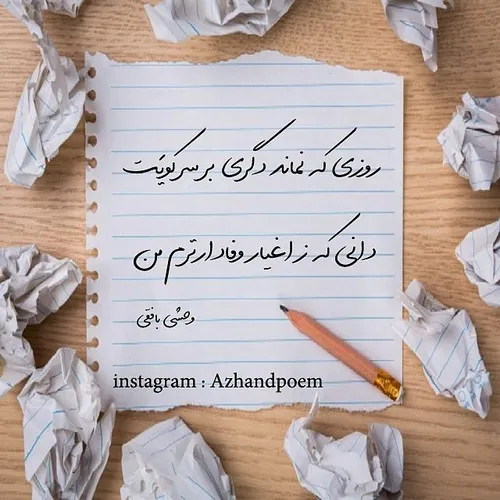 روزی که نماند دگری بر سر کویت
دانی که ز اغیار وفادارترم من
وحشی بافقی
instagram : Azhandpoem